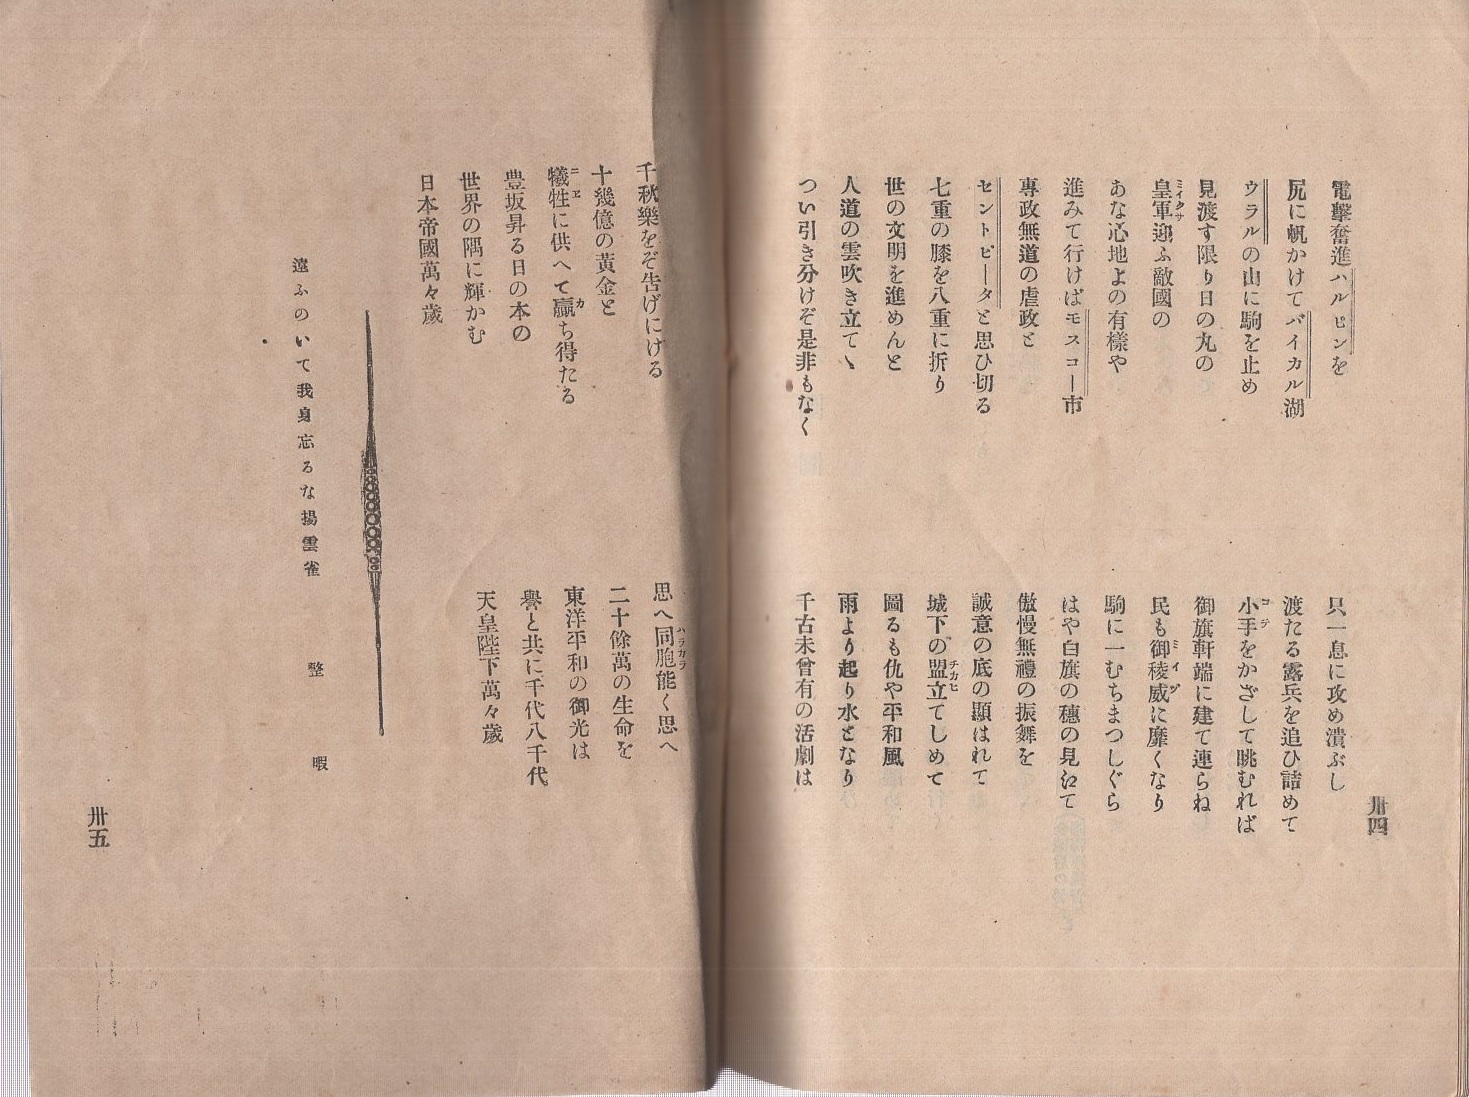 電擊奮進ハルピンを
只一息に攻め潰ぶし
尻に帆かけてバイカル湖
渡たる露兵を追ひ詰めて
ウラルの山に駒を止め
小手をかざして眺むれば
見渡す限り日の丸の
御旗軒端に建て連らね
皇軍迎ふ敵國の
民も御稜威に靡くなり
あな心地よの有樣や
駒に一むちまつしぐら
進みて行けばモスコー市
はや白旗の穗の見ゑて
專政無道の虐政と
傲慢無禮の振舞を
セントピータと思ひ切る
誠意の底の顯はれて
七重の膝を八重に折り
城下の盟立てしめて
世の文明を進めんと
圖るも仇や平和風
人道の雲吹き立て丶
雨より起り水となり
つい引き分けぞ是非もなく
千古未曾有の活劇は
卅四
千秋樂をぞ告げにける
思へ同胞能く思へ
十幾億の黃金と
二十餘萬の生命を
犠牲に供へて贏ち得たる
東洋平和の御光は
豊坂昇る日の本の
譽と共に千代八千代
世界の隅に輝かむ
天皇陛下萬々歲
日本帝國萬々歲
遠ふのいて我身忘るな揚雲雀
整暇
卅五